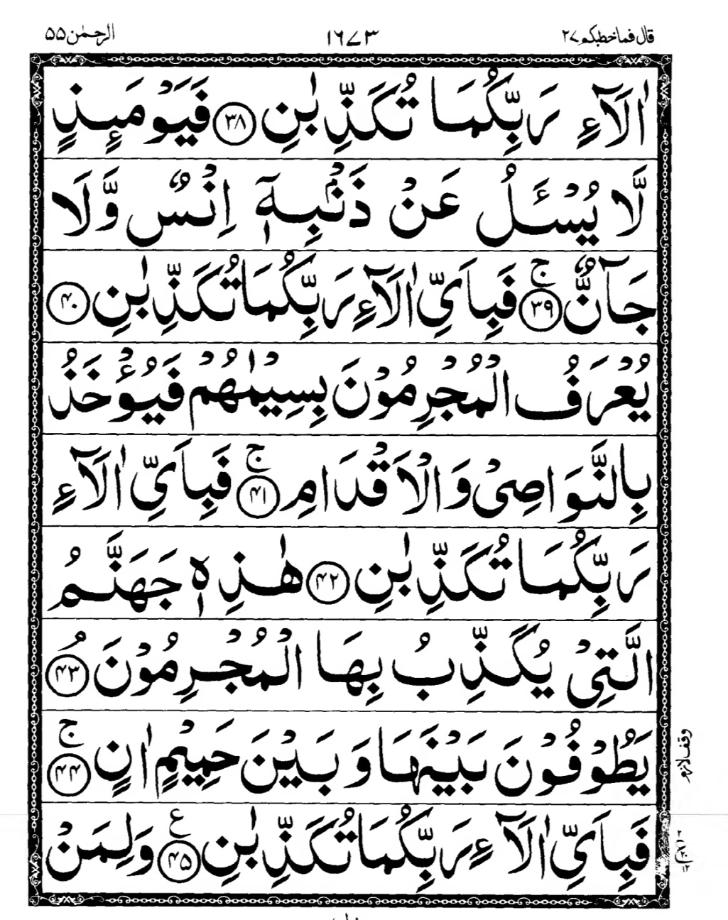 قال فماخطبكم ٢٧ ١٦٧٣ الرحمٰن ٥٥
اٰلَآءِ رَبِّكُمَا تُكَذِّبٰنِ ﴿۳۸﴾ فَيَوْمَىِٕذٍ
لَّا يُسْـَٔلُ عَنْ ذَنْۢبِهٖۤ اِنْسٌ وَّلَا
جَآنٌّ ۚ﴿۳۹﴾ فَبِاَىِّ اٰلَآءِ رَبِّكُمَا تُكَذِّبٰنِ ﴿۴۰﴾
يُعْرَفُ الْمُجْرِمُوْنَ بِسِيْمٰهُمْ فَيُؤْخَذُ
بِالنَّوَاصِىْ وَالْاَقْدَامِ ۚ﴿۴۱﴾ فَبِاَىِّ اٰلَآءِ
رَبِّكُمَا تُكَذِّبٰنِ ﴿۴۲﴾ هٰذِهٖ جَهَنَّمُ
الَّتِىْ يُكَذِّبُ بِهَا الْمُجْرِمُوْنَ ۘ﴿۴۳﴾
يَطُوْفُوْنَ بَيْنَهَا وَبَيْنَ حَمِيْمٍ اٰنٍ ۚ﴿۴۴﴾
وقف لازم
فَبِاَىِّ اٰلَآءِ رَبِّكُمَا تُكَذِّبٰنِ ﴿۴۵﴾ ع وَلِمَنْ